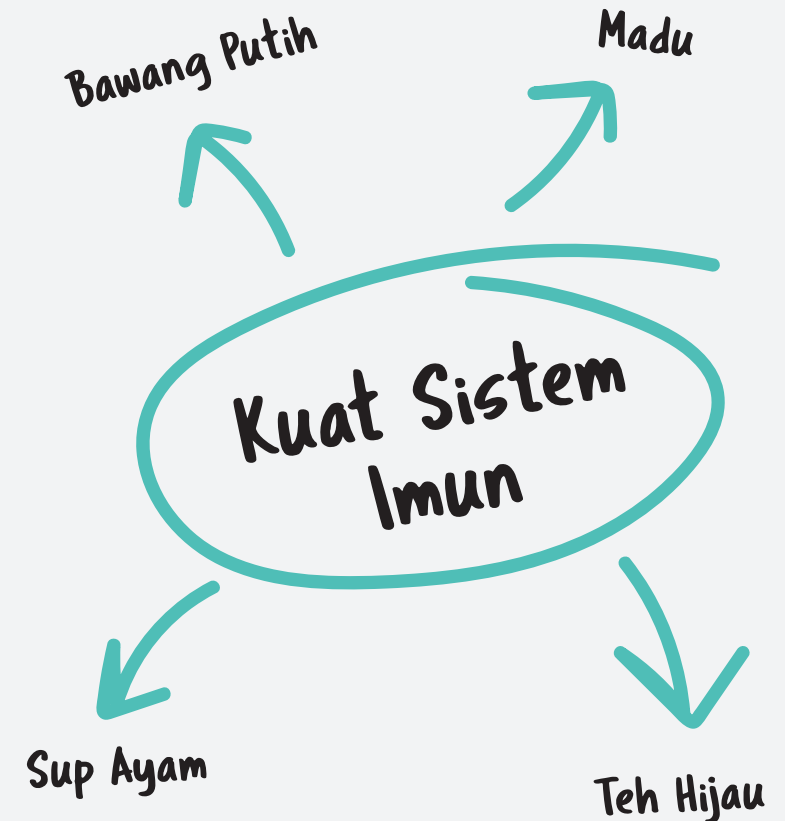 Bawang Putih
Madu
Kuat Sistem
Imun
Sup Ayam
Teh Hijau